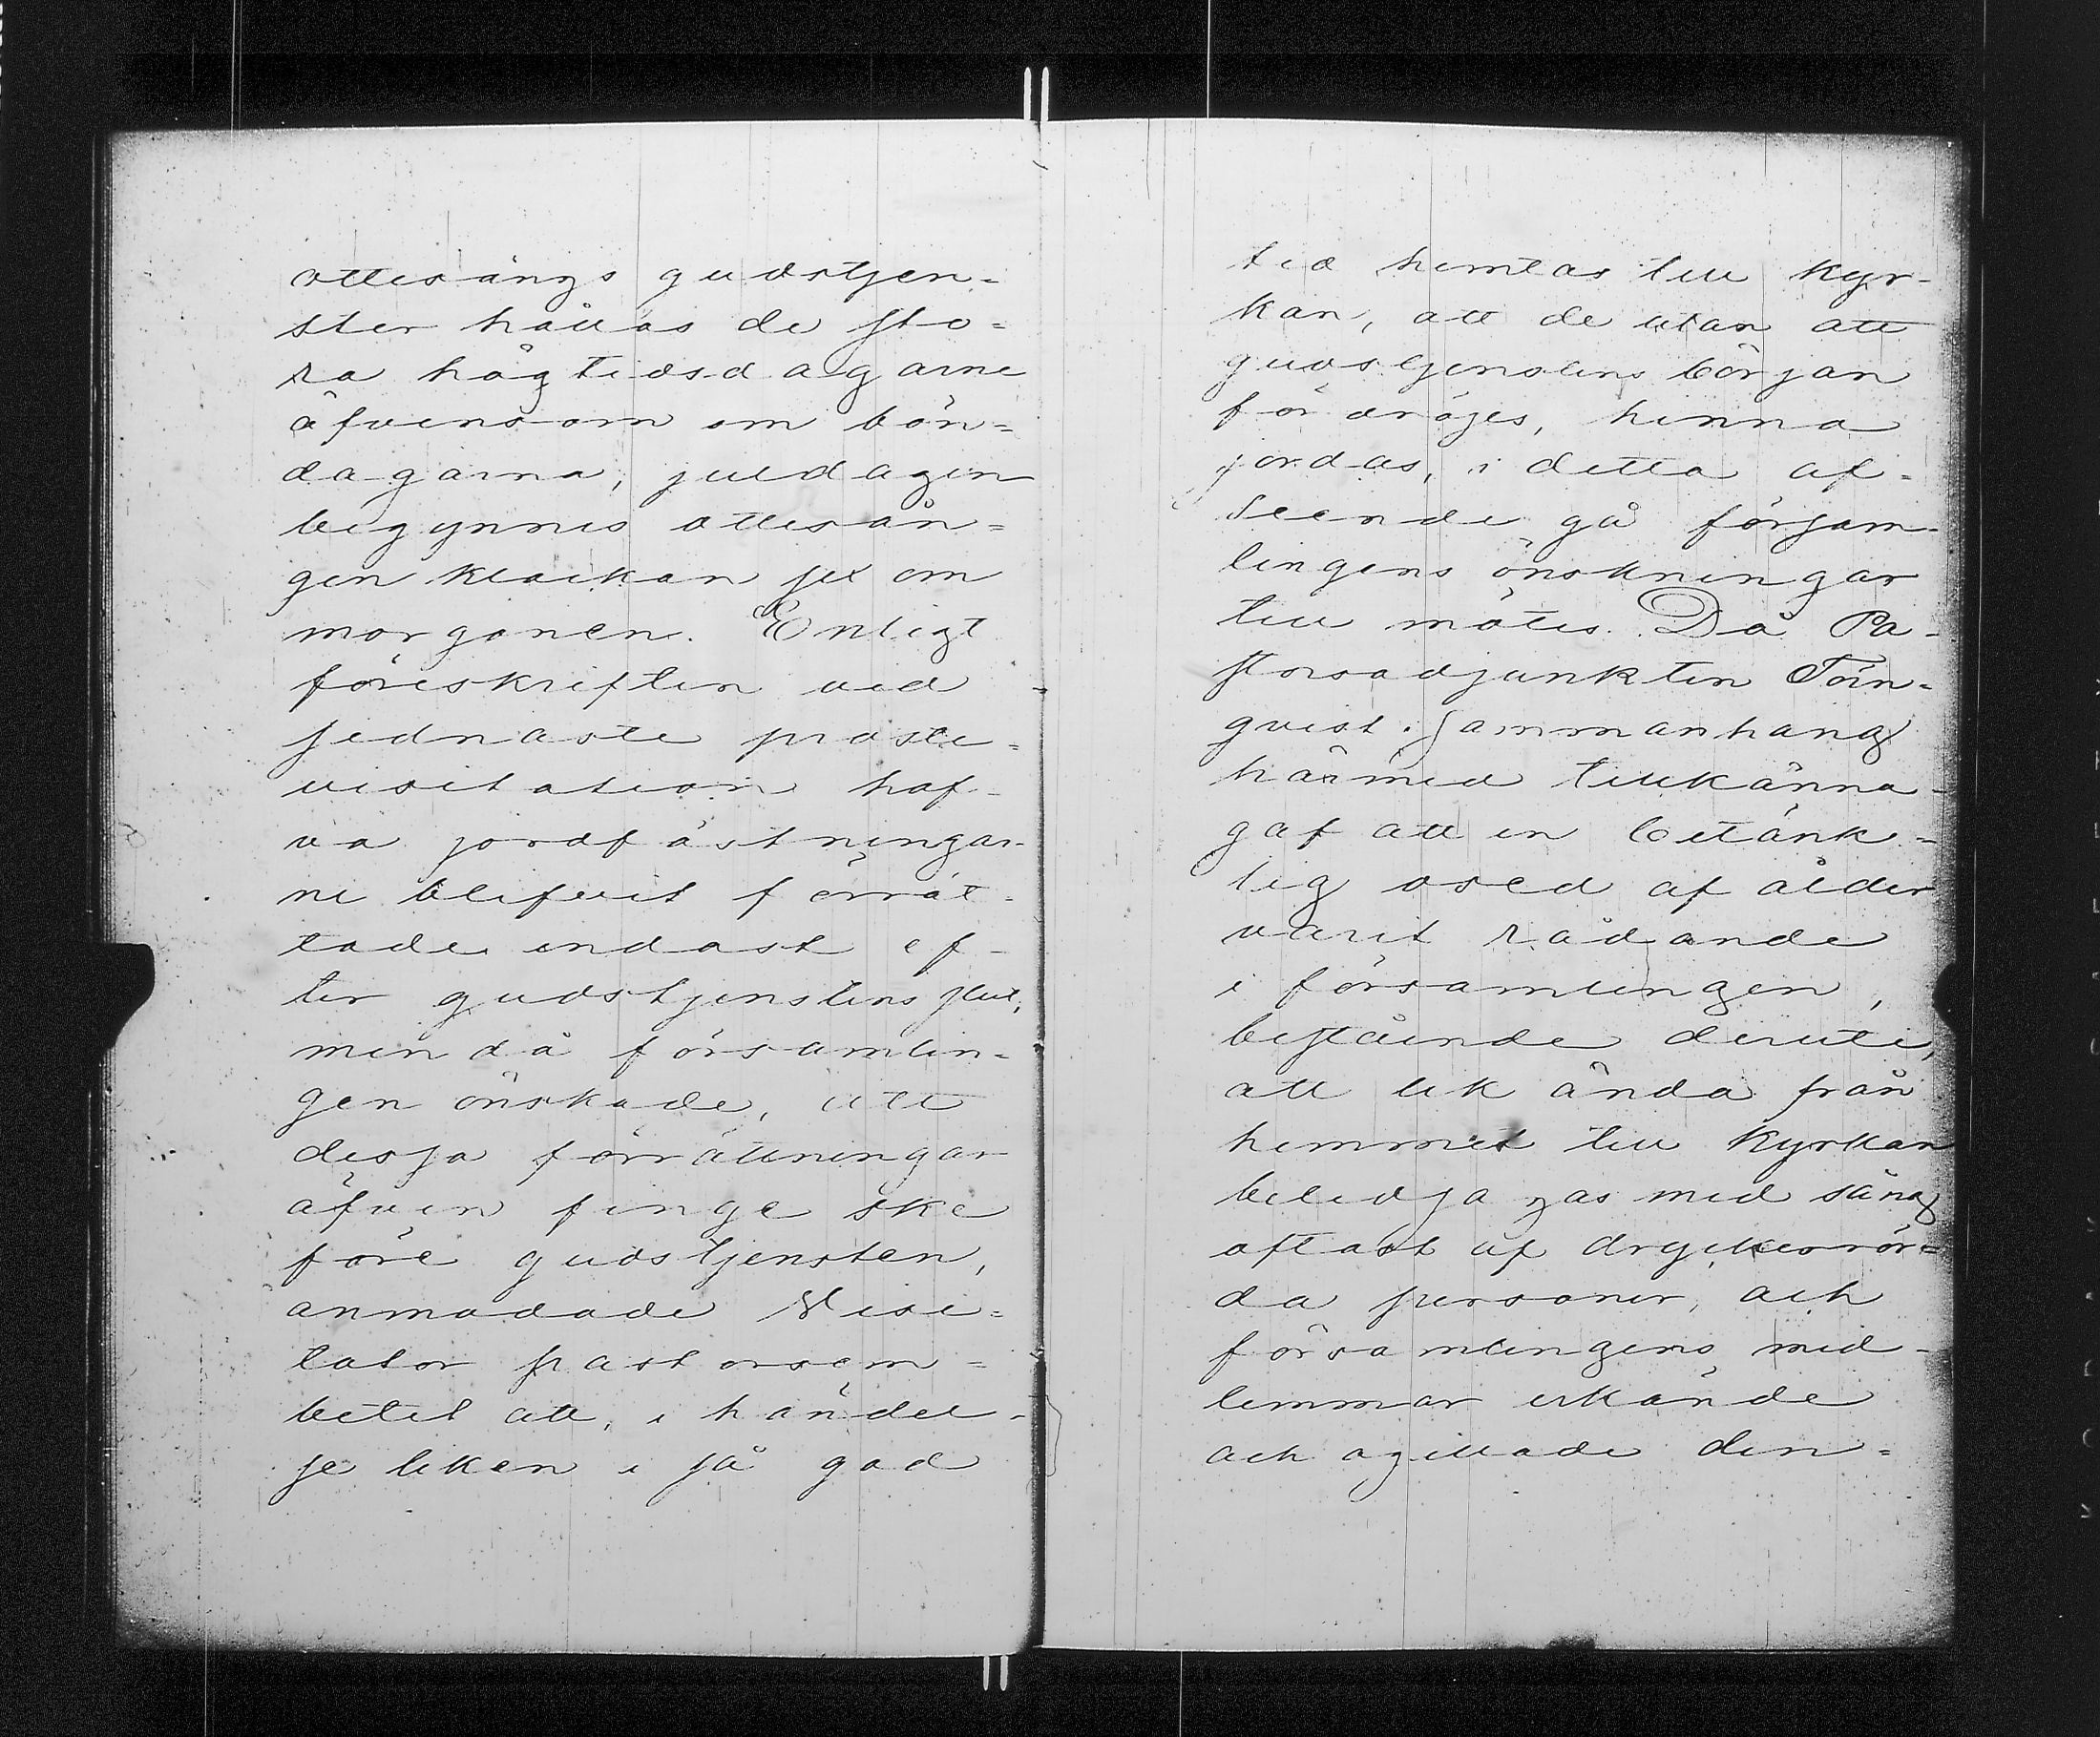 ottesångs gudstjen=
ster hållas de sto=
ra högtidsdagarne
äfvensom om bön=
dagarna, juldagen
begynnes ottesån=
gen klockan sex om
morgonen. Enligt
föreskriften vid
sednaste proste=
visitation haf-
va jordfästningar-
ne blifvit förrät-
tade endast ef-
ter gudstjenstens slut,
men då församlin=
gen önskade, att
dessa förrättningar
äfven finge ske
före gudstjensten,
anmodade Visi=
tator pastorsem=
betet att, i händel-
se liken i så god
tid hemtas till kyr-
kan, att de utan att
gudstjenstens början
fördröjes, hinna
jordas, i detta af=
seende gå försam-
lingens önskningar
till mötes. Då Pa-
storsadjunkten Törn=
qvist i sammanhang
härmed tillkänna-
gaf att en betänk=
lig osed af ålder
varit rådande
i församlingen,
bestående deruti,
att lik ända från
hemmet till kyrkan
beledsagas med sång
oftast af dryckesrör=
da personer, och
församlingens med-
lemmar erkände
och ogillade den=